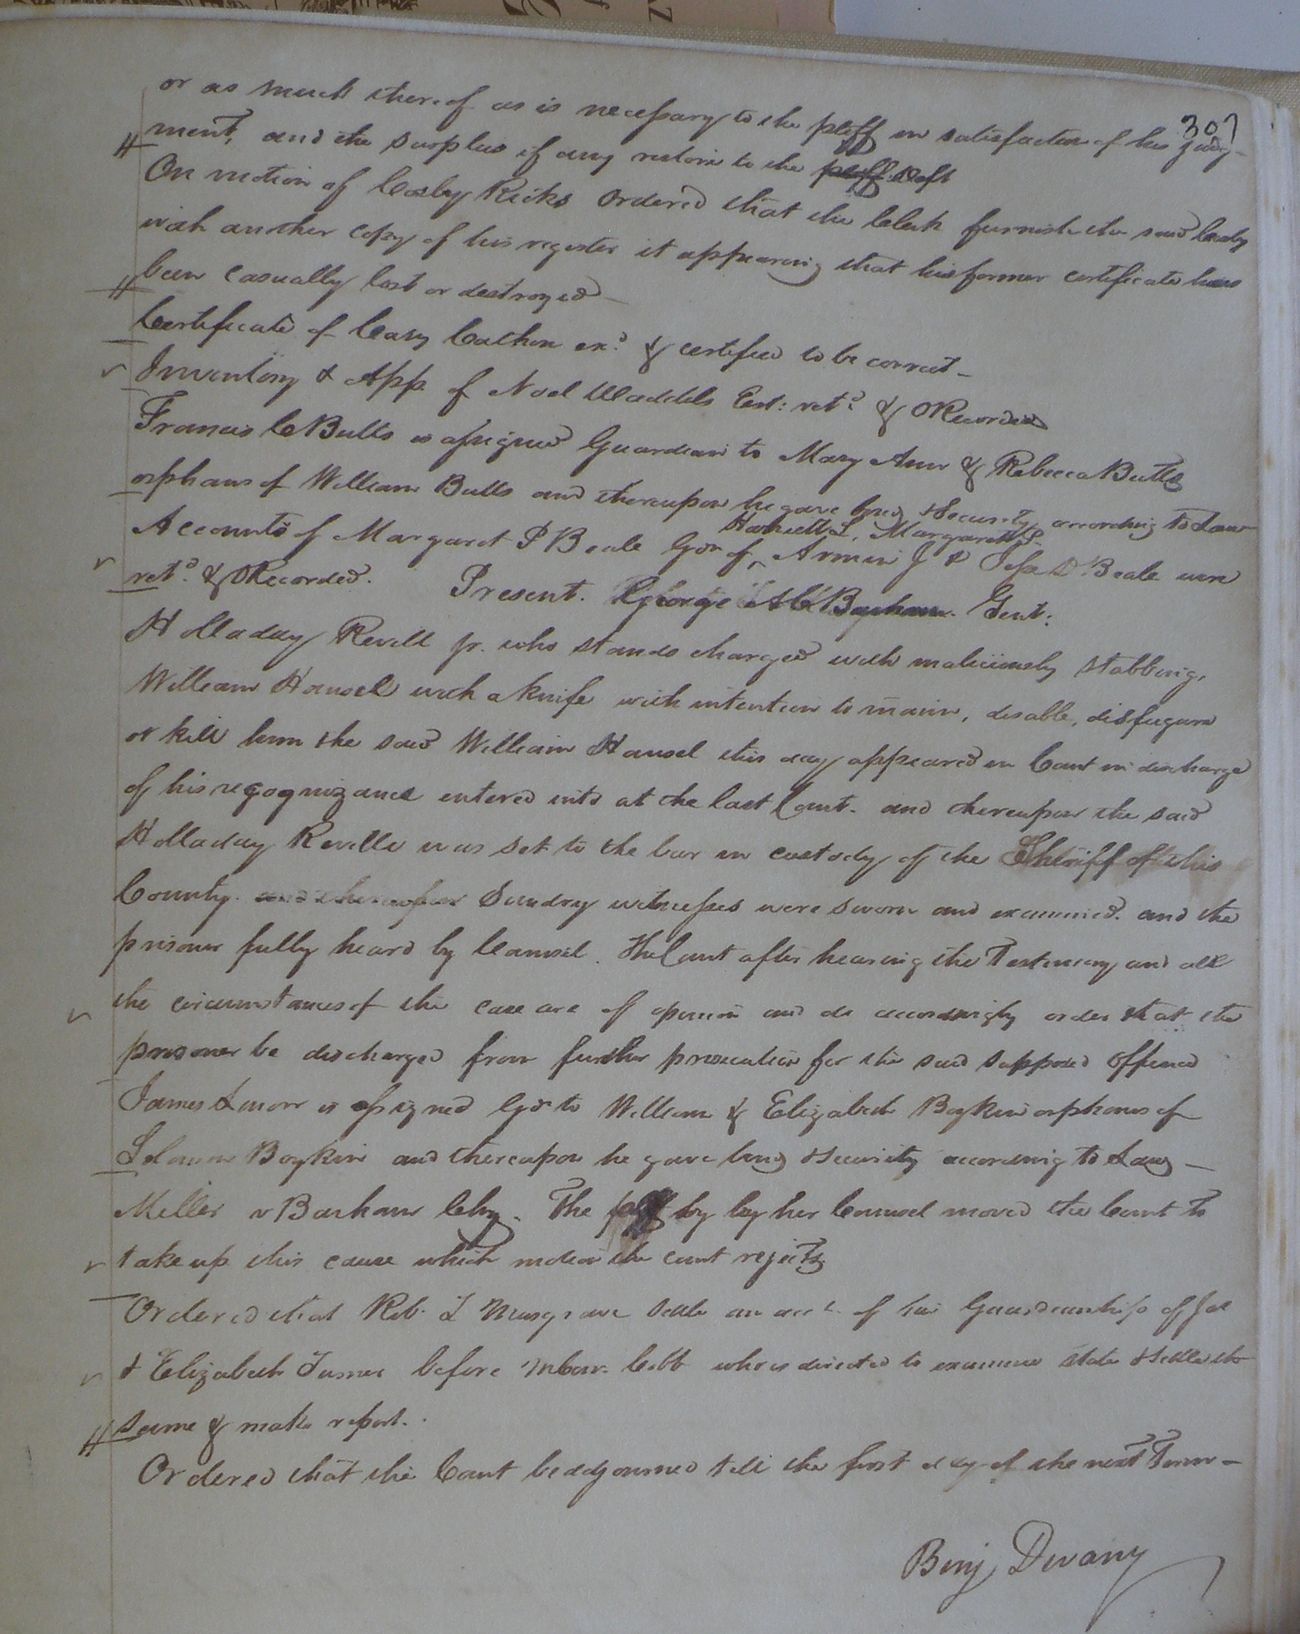 307
or as much thereof as is necessary to the pltff in satisfaction of his judg-
ment, and the surplus if any restore to the pltff Deft
On motion of Cosby Ricks Ordered that the Clerk furnish the said Cosby
with another copy of his register it appearing that his former certificate has
been casually lost or destroyed
Certificate of Cary ex.d & certified to be correct
Inventory & App. of Noel Waddills Est: ret.d & ORecorded
Francis C Butts is assigned Guardian to Mary Ann & Rebecca Butts
orphans of William Butts and thereupon he gave bond & Security according to Law
Harriett L, Margarett S.
Accounts of Margaret P Beale Gdn of, J & D Beale were
ret.d & ORecorded. Present. George Barham Gent:
Holladay Revill jr. who stands charged with maliciously stabbing,
William Hansel with a knife with intention to maim, disable, disfigure
or kill him the said William Hansel this day appeared in Court in discharge
of his recognizance entered into at the last Court. and thereupon the said
Holladay Revill was set to the bar in custody of the Sheriff of this
County. and thereupon Sundry witnesses were sworn and examined. and the
prisoner fully heard by Counsel. The Court after hearing the Testimony and all
the circumstances of the case are of opinion and do accordingly order that the
prisoner be discharged from further prosecution for the said supposed offence
James is assigned Gdn to William & Elizabeth Boykin orphans of
Solomon Boykin and thereupon he gave bond & Security according to Law
Miller v Barham Chy. The by by her Counsel moved the Court to
take up this cause which motion the court rejects
Ordered that Rob. Musgrave settle an acct. of his Guardianship of Jas
& Elizabeth Turner before Cobb who is directed to examine state & settle the
same & make report.
Ordered that the Court be adjourned till the first day of the next Term
Benj Devany